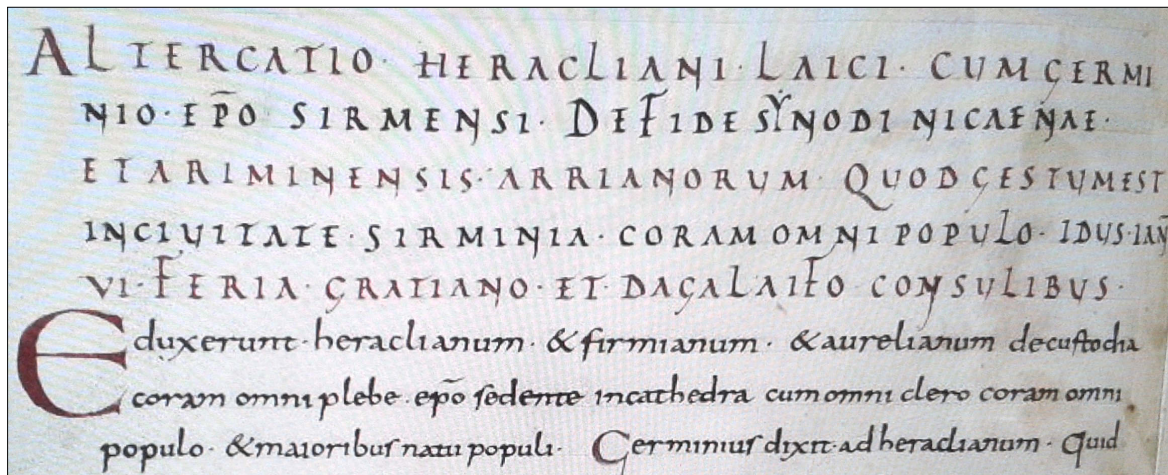 ALTERCATIO· HERACLIANI· LAICI· CUMGERMI
NIO· EP̄O SIRMENSI· DEFIDE SYNODI NICAENAE·
ETARIMINENSIS· ARRIANORUM· QUODGESTUMEST
INCIUITATE· SIRMINIA· CORAMOMNI POPULO· IDUS·IAN̄
VI·FERIA· GRATIANO· ET· DAGALAIFO CONSULIBUS·
Eduxerunt·heraclianum· &firmianum· &aurelianum decustodia
coram omni plebe·ep̄o sedente incathedra cumomni clero coram omni
populo· &maioribus natu populi· Germinius dixit·ad heraclianum· Quid